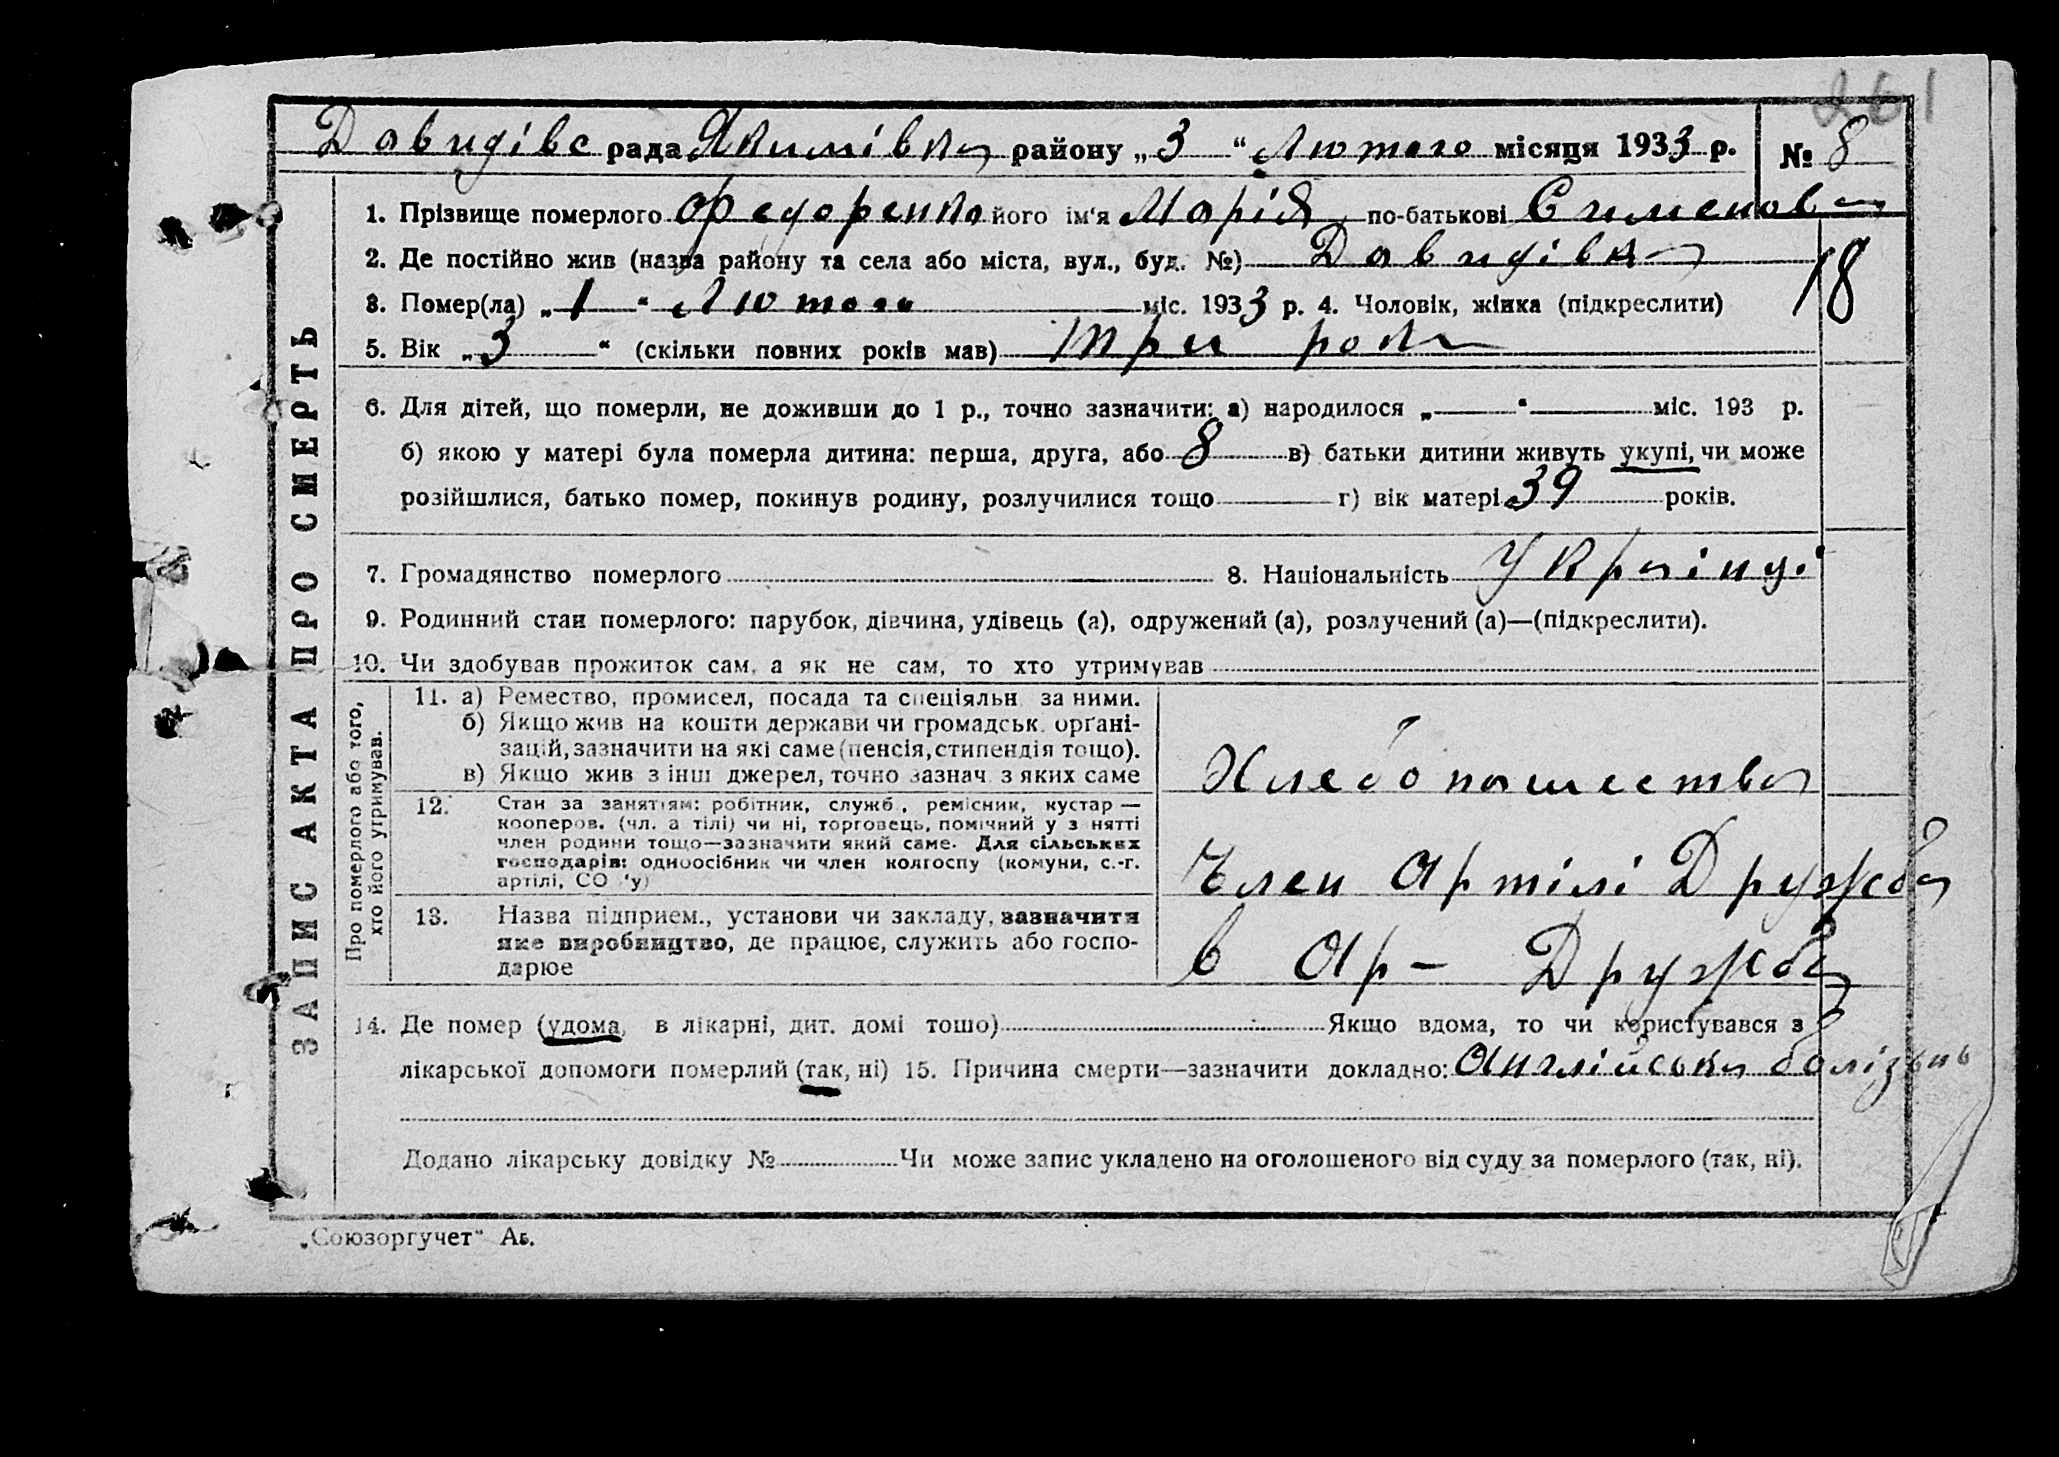 261
Давидівс рада Якимівка району „3“ Лютого місяця 1933 р. № 8
1. Прізвище померлого Федоренко його ім‘я Марія по-батькові Сименовна
2. Де постійно жив (назва району та села або міста, вул., буд. №) Давидівка
18
3. Помер(ла) „1“ Лютого міс. 1933 р. 4. Чоловік, жінка (підкреслити)
5. Вік „3“ (скільки повних років мав) три роки
6. Для дітей, що померли, не доживши до 1 р., точно зазначити: а) народилося „ “ міс. 193 р.
б) якою у матері була померла дитина: перша, друга, або 8 в) батьки дитини живуть укупі, чи може
розійшлися, батько помер, покинув родину, розлучилися тощо г) вік матері 39 років.
7. Громадянство померлого 8. Національність Українці
9. Родинний стан померлого: парубок, дівчина, удівець (а), одружений (а), розлучений (а)—(підкреслити).
10. Чи здобував прожиток сам, а як не сам, то хто утримував
ЗАПИС АКТА ПРО СМЕРТЬ
Про померлого або того,
хто його утримував.
11. а) Ремество, промисел, посада та спеціяльн за ними.
б) Якщо жив на кошти держави чи громадськ. орґані-
зацій, зазначити на які саме (пенсія, стипендія тощо).
в) Якщо жив з інш джерел, точно зазнач з яких саме
Хлебопашества
12. Стан за заняттям: робітник, служб., ремісник, кустар —
кооперов. (чл. артілі) чи ні, торговець, помічний у занятті
член родини тощо—зазначити який саме. Для сільських
господарів: одноосібник чи член колгоспу (комуни, с.-г.
артілі, СО у)
Член Артілі Дружба
13. Назва підприєм., установи чи закладу, зазначити
яке виробництво, де працює, служить або госпо-
дарює
в Ар- Дружба
14. Де помер (удома, в лікарні, дит. домі тощо) Якщо вдома, то чи користувався з
лікарської допомоги померлий (так, ні) 15. Причина смерти—зазначити докладно: Англійська болізьнь
Додано лікарську довідку № Чи може запис укладено на оголошеного від суду за померлого (так, ні).
„Союзоргучет“ Аб.